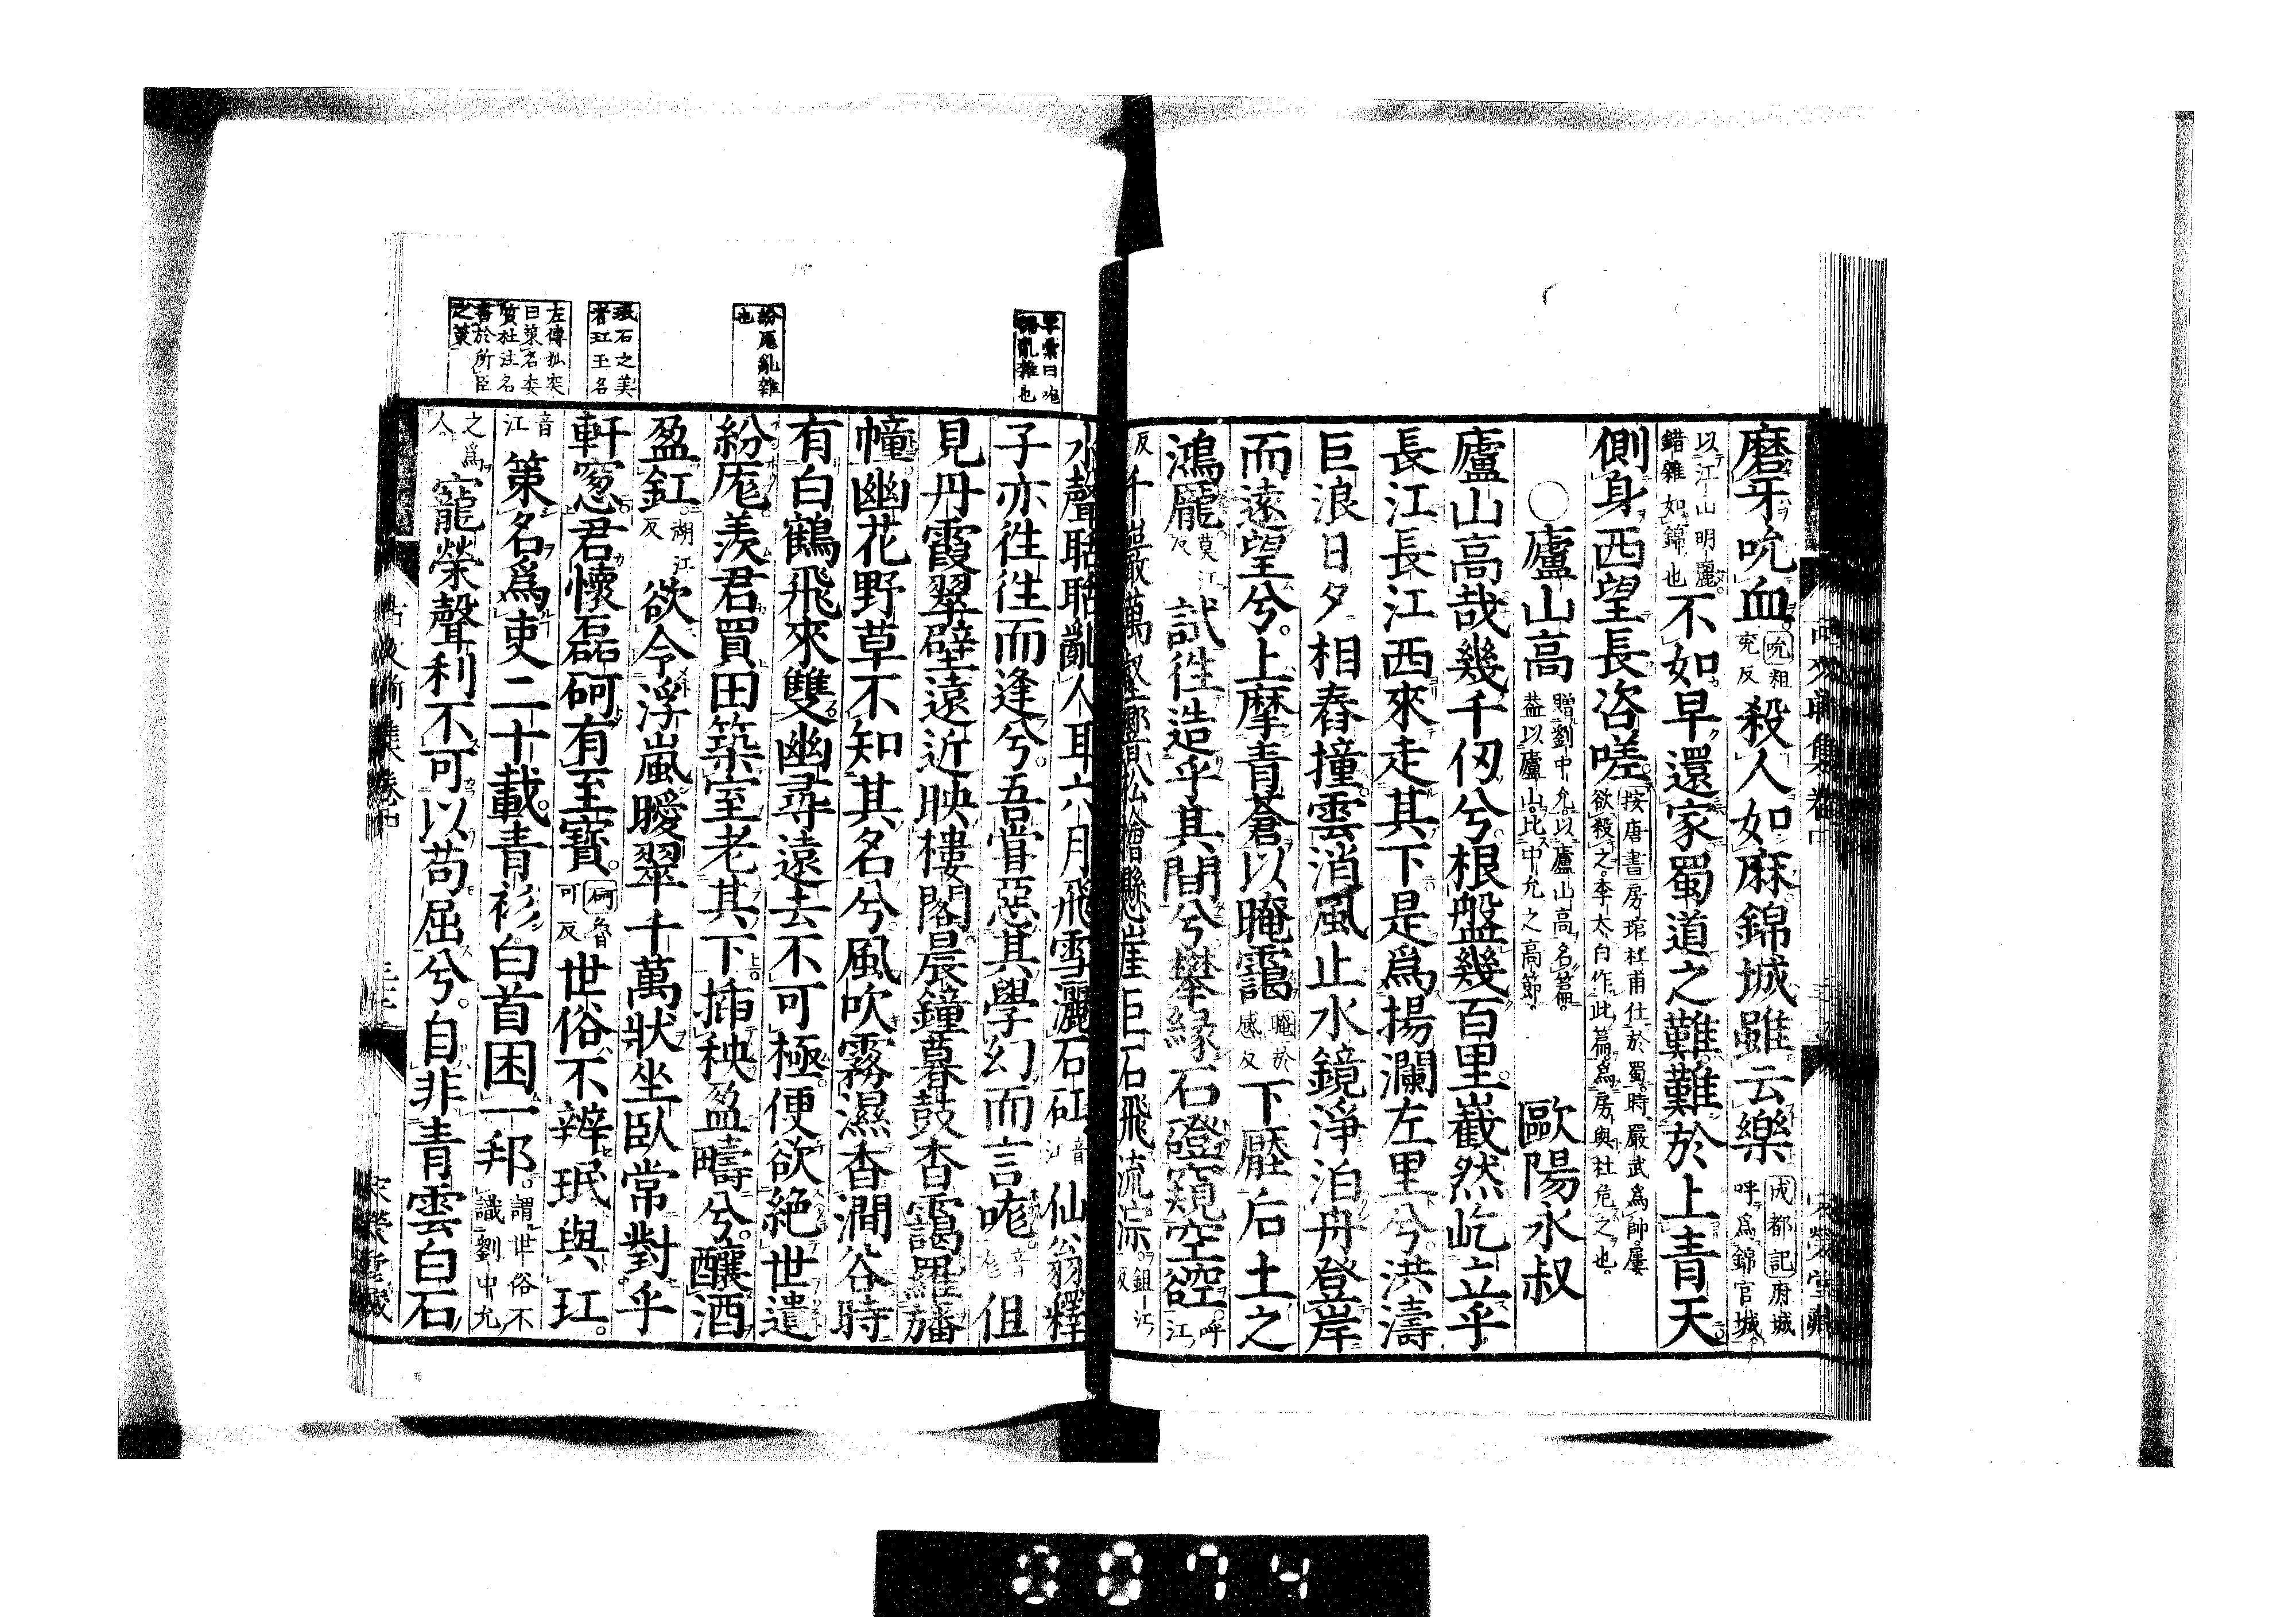 磨牙吮血吮粗兖反殺人如麻錦城雖云樂成都記府城呼爲錦官城
以江山明麗錯雜如錦也不如早還家蜀道之難難於上青天
側身西望長咨嗟按唐書房琯杜甫仕於蜀時嚴武爲帥屢欲殺之李太白作此篇爲房與杜危之也
○廬山高贈劉中允以廬山高名篇蓋以廬山比中允之高節歐陽永叔
廬山高哉幾千仞兮根盤幾百里嶻然屹立乎
長江長江西來走其下是爲揚瀾左里兮洪濤
巨浪日夕相舂撞雲消風止水鏡淨泊舟登岸
而遠望兮上摩青蒼以晻靄晻於感反下壓后土之
鴻厖莫江反試往造乎其間兮攀緣石磴窺空谾呼江
反千巖萬壑響松檜懸崖巨石飛流淙鉏江反
水聲聒聒亂人耳六月飛雪灑石矼音江仙翁釋
子亦徃徃而逢兮吾嘗惡其學幻而言哤音尨但
見丹霞翠壁遠近映樓閣晨鐘暮鼓杳靄羅旛
幢幽花野草不知其名兮風吹霧濕香澗谷時
有白鶴飛來雙幽尋遠去不可極便欲絶世遺
紛厖羨君買田築室老其下插秧盈疇兮釀酒
盈缸胡江反欲令浮嵐曖翠千萬狀坐臥常對乎
軒窓君懷磊砢有至寶砢魯可反世俗不辨珉與玒
音江策名爲吏二十載青衫白首困一邦謂世俗不識劉中允
之爲人寵榮聲利不可以苟屈兮自非青雲白石
草彙曰哤語亂雜也
紛厖亂雜也
珉石之美者玒玉名
左傳狐突曰策名委質杜注名書於所臣之策
古文前集卷中
宋榮堂藏
3974